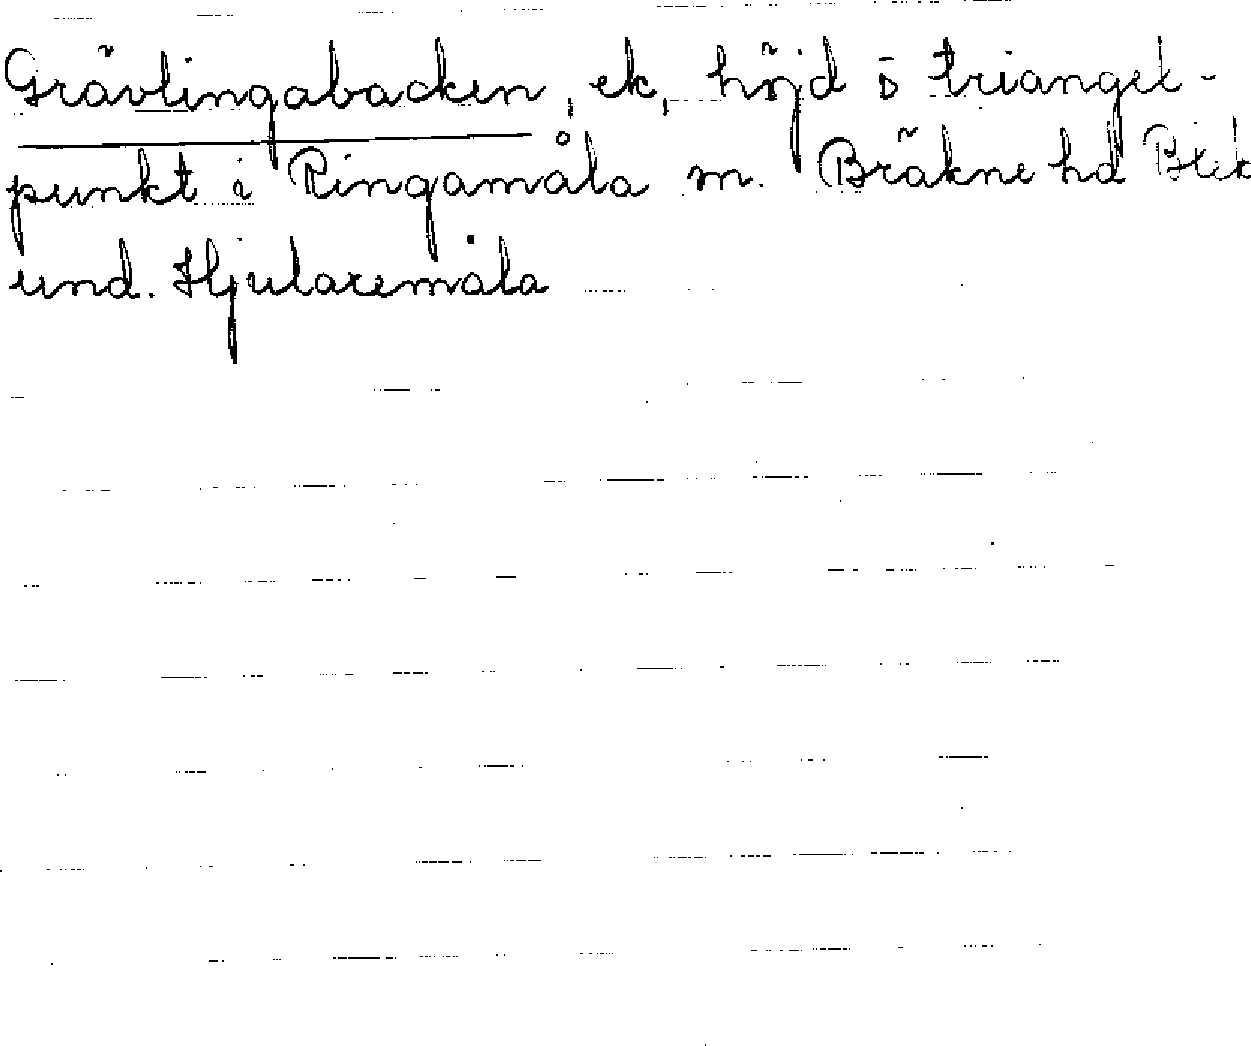 Grävlingabacken, ek, höjd ō triangel-
punkt i Ringamåla m. Bräkne hd Blek
und. Hjularemåla